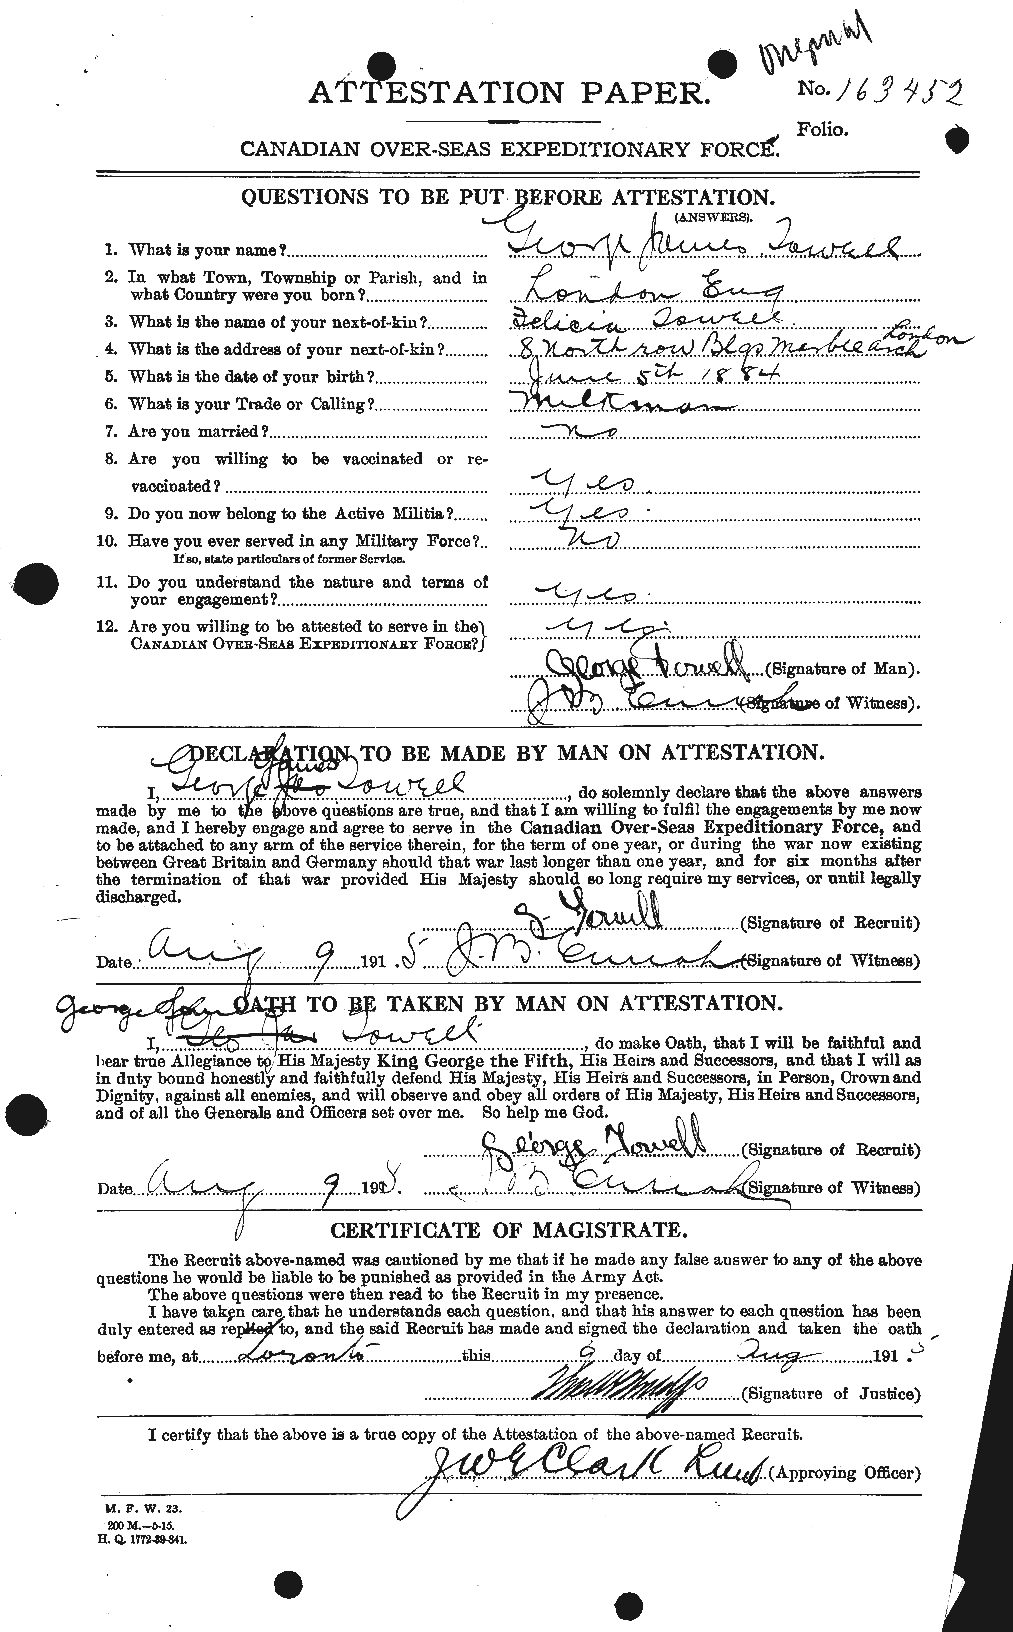 Original
ATTESTATION PAPER.
No. 163452
Folio.
CANADIAN OVER-SEAS EXPEDITIONARY FORCE.
QUESTIONS TO BE PUT BEFORE ATTESTATION.
(ANSWERS).
1. What is your name? George James Towell
2. In what Town, Township or Parish, and in
what Country were you born? London Eng
3. What is the name of your next-of-kin? Felicia Towell
4. What is the address of your next-of-kin? 8 North row Blgs Marble arch London
5. What is the date of your birth? June 5th 1884
6. What is your Trade or Calling? Milkman
7. Are you married? no
8. Are you willing to be vaccinated or re-
vaccinated? Yes.
9. Do you now belong to the Active Militia? Yes.
10. Have you ever served in any Military Force? No
If so, state particulars of former Service.
11. Do you understand the nature and terms of
your engagement? Yes.
12. Are you willing to be attested to serve in the
CANADIAN OVER-SEAS EXPEDITIONARY FORCE? Yes.
George Towell (Signature of Man).
J B (Signature of Witness).
DECLARATION TO BE MADE BY MAN ON ATTESTATION.
James
I, George Towell, do solemnly declare that the above answers
made by me to the above questions are true, and that I am willing to fulfil the engagements by me now
made, and I hereby engage and agree to serve in the Canadian Over-Seas Expeditionary Force, and
to be attached to any arm of the service therein, for the term of one year, or during the war now existing
between Great Britain and Germany should that war last longer than one year, and for six months after
the termination of that war provided His Majesty should so long require my services, or until legally
discharged.
G. Towell (Signature of Recruit)
Date Aug 9 1915 J. B. (Signature of Witness)
OATH TO BE TAKEN BY MAN ON ATTESTATION.
George John
I, Geo Jas Towell, do make Oath, that I will be faithful and
bear true Allegiance to His Majesty King George the Fifth, His Heirs and Successors, and that I will as
in duty bound honestly and faithfully defend His Majesty, His Heirs and Successors, in Person, Crown and
Dignity, against all enemies, and will observe and obey all orders of His Majesty, His Heirs and Successors,
and of all the Generals and Officers set over me. So help me God.
George Towell (Signature of Recruit)
Date Aug 9 1915. J B (Signature of Witness)
CERTIFICATE OF MAGISTRATE.
The Recruit above-named was cautioned by me that if he made any false answer to any of the above
questions he would be liable to be punished as provided in the Army Act.
The above questions were then read to the Recruit in my presence.
I have taken care that he understands each question, and that his answer to each question has been
duly entered as replied to, and the said Recruit has made and signed the declaration and taken the oath
before me, at Toronto this 9 day of Aug 1915
(Signature of Justice)
I certify that the above is a true copy of the Attestation of the above-named Recruit.
J W E Clark Lieut (Approving Officer)
M. F. W. 23.
200 M.—5-15.
H. Q. 1772-39-841.